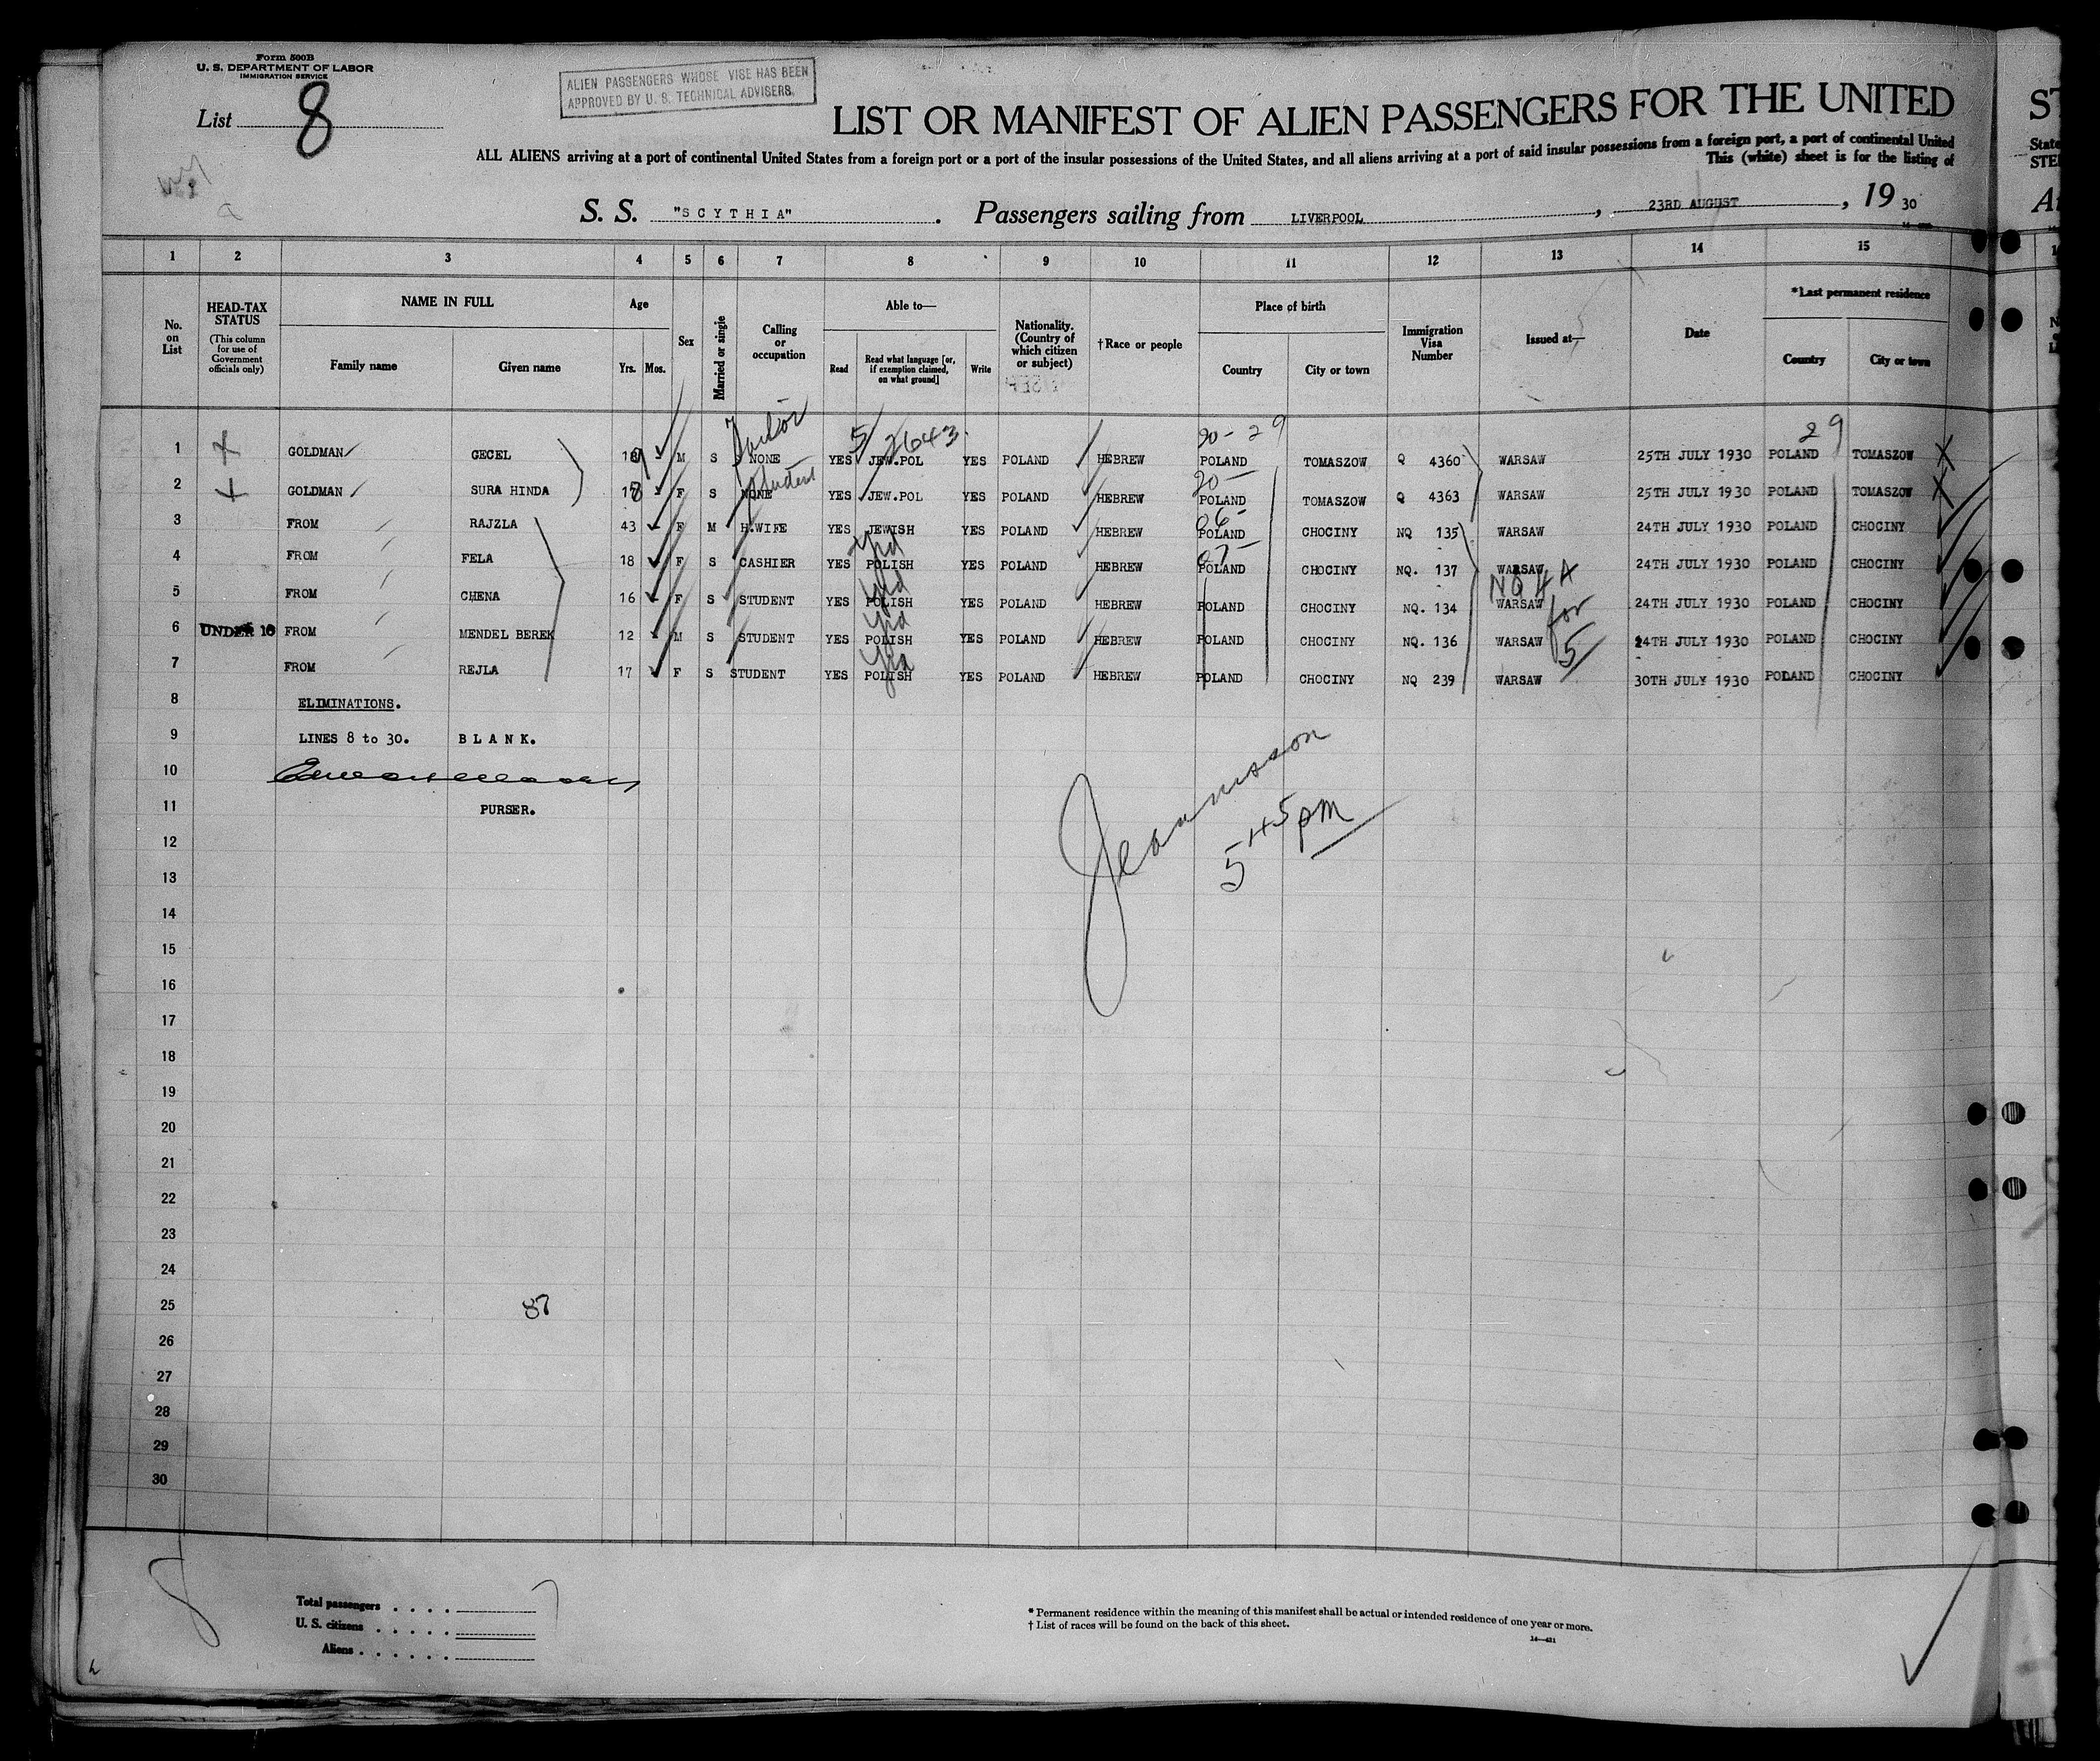 Form 500B
U. S. DEPARTMENT OF LABOR
IMMIGRATION SERVICE
ALIEN PASSENGERS WHOSE VISE HAS BEEN
APPROVED BY U. S. TECHNICAL ADVISERS.
List 8
LIST OR MANIFEST OF ALIEN PASSENGERS FOR THE UNITED
ST
ALL ALIENS arriving at a port of continental United States from a foreign port or a port of the insular possessions of the United States, and all aliens arriving at a port of said insular possessions from a foreign port, a port of continental United
State
This (white) sheet is for the listing of
STE
S. S. "SCYTHIA". Passengers sailing from LIVERPOOL, 23RD AUGUST, 19 30
1 2 3 4 5 6 7 8 9 10 11 12 13 14 15
No. on List
HEAD-TAX STATUS
(This column for use of Government officials only)
NAME IN FULL
Family name Given name
Age
Yrs. Mos.
Sex
Married or single
Calling or occupation
Able to—
Read
Read what language [or, if exemption claimed, on what ground]
Write
Nationality. (Country of which citizen or subject)
†Race or people
Place of birth
Country City or town
Immigration Visa Number
Issued at—
Date
*Last permanent residence
Country City or town
5/2643 20-29 29
1 GOLDMAN GECEL M S NONE YES JEW.POL YES POLAND HEBREW POLAND TOMASZOW Q 4360 WARSAW 25TH JULY 1930 POLAND TOMASZOW X
Student 20-
2 GOLDMAN SURA HINDA F S NONE YES JEW.POL YES POLAND HEBREW POLAND TOMASZOW Q 4363 WARSAW 25TH JULY 1930 POLAND TOMASZOW X
3 FROM RAJZLA 43 F M H.WIFE YES JEWISH YES POLAND HEBREW POLAND CHOCINY NQ 135 WARSAW 24TH JULY 1930 POLAND CHOCINY
Yid
4 FROM FELA 18 F S CASHIER YES POLISH YES POLAND HEBREW POLAND CHOCINY NQ. 137 WARSAW 24TH JULY 1930 POLAND CHOCINY
Yid NQ 4A
5 FROM CHENA 16 F S STUDENT YES POLISH YES POLAND HEBREW POLAND CHOCINY NQ. 134 WARSAW 24TH JULY 1930 POLAND CHOCINY
Yid for
6 UNDER 16 FROM MENDEL BEREK 12 M S STUDENT YES POLISH YES POLAND HEBREW POLAND CHOCINY NQ. 136 WARSAW 24TH JULY 1930 POLAND CHOCINY
Yid 5
7 FROM REJLA 17 F S STUDENT YES POLISH YES POLAND HEBREW POLAND CHOCINY NQ 239 WARSAW 30TH JULY 1930 POLAND CHOCINY
8 ELIMINATIONS.
9 LINES 8 to 30. BLANK.
10
11 PURSER.
5 45 pm
12
13
14
15
16
17
18
19
20
21
22
23
24
25 87
26
27
28
29
30
Total passengers
U. S. citizens
Aliens
* Permanent residence within the meaning of this manifest shall be actual or intended residence of one year or more.
† List of races will be found on the back of this sheet.